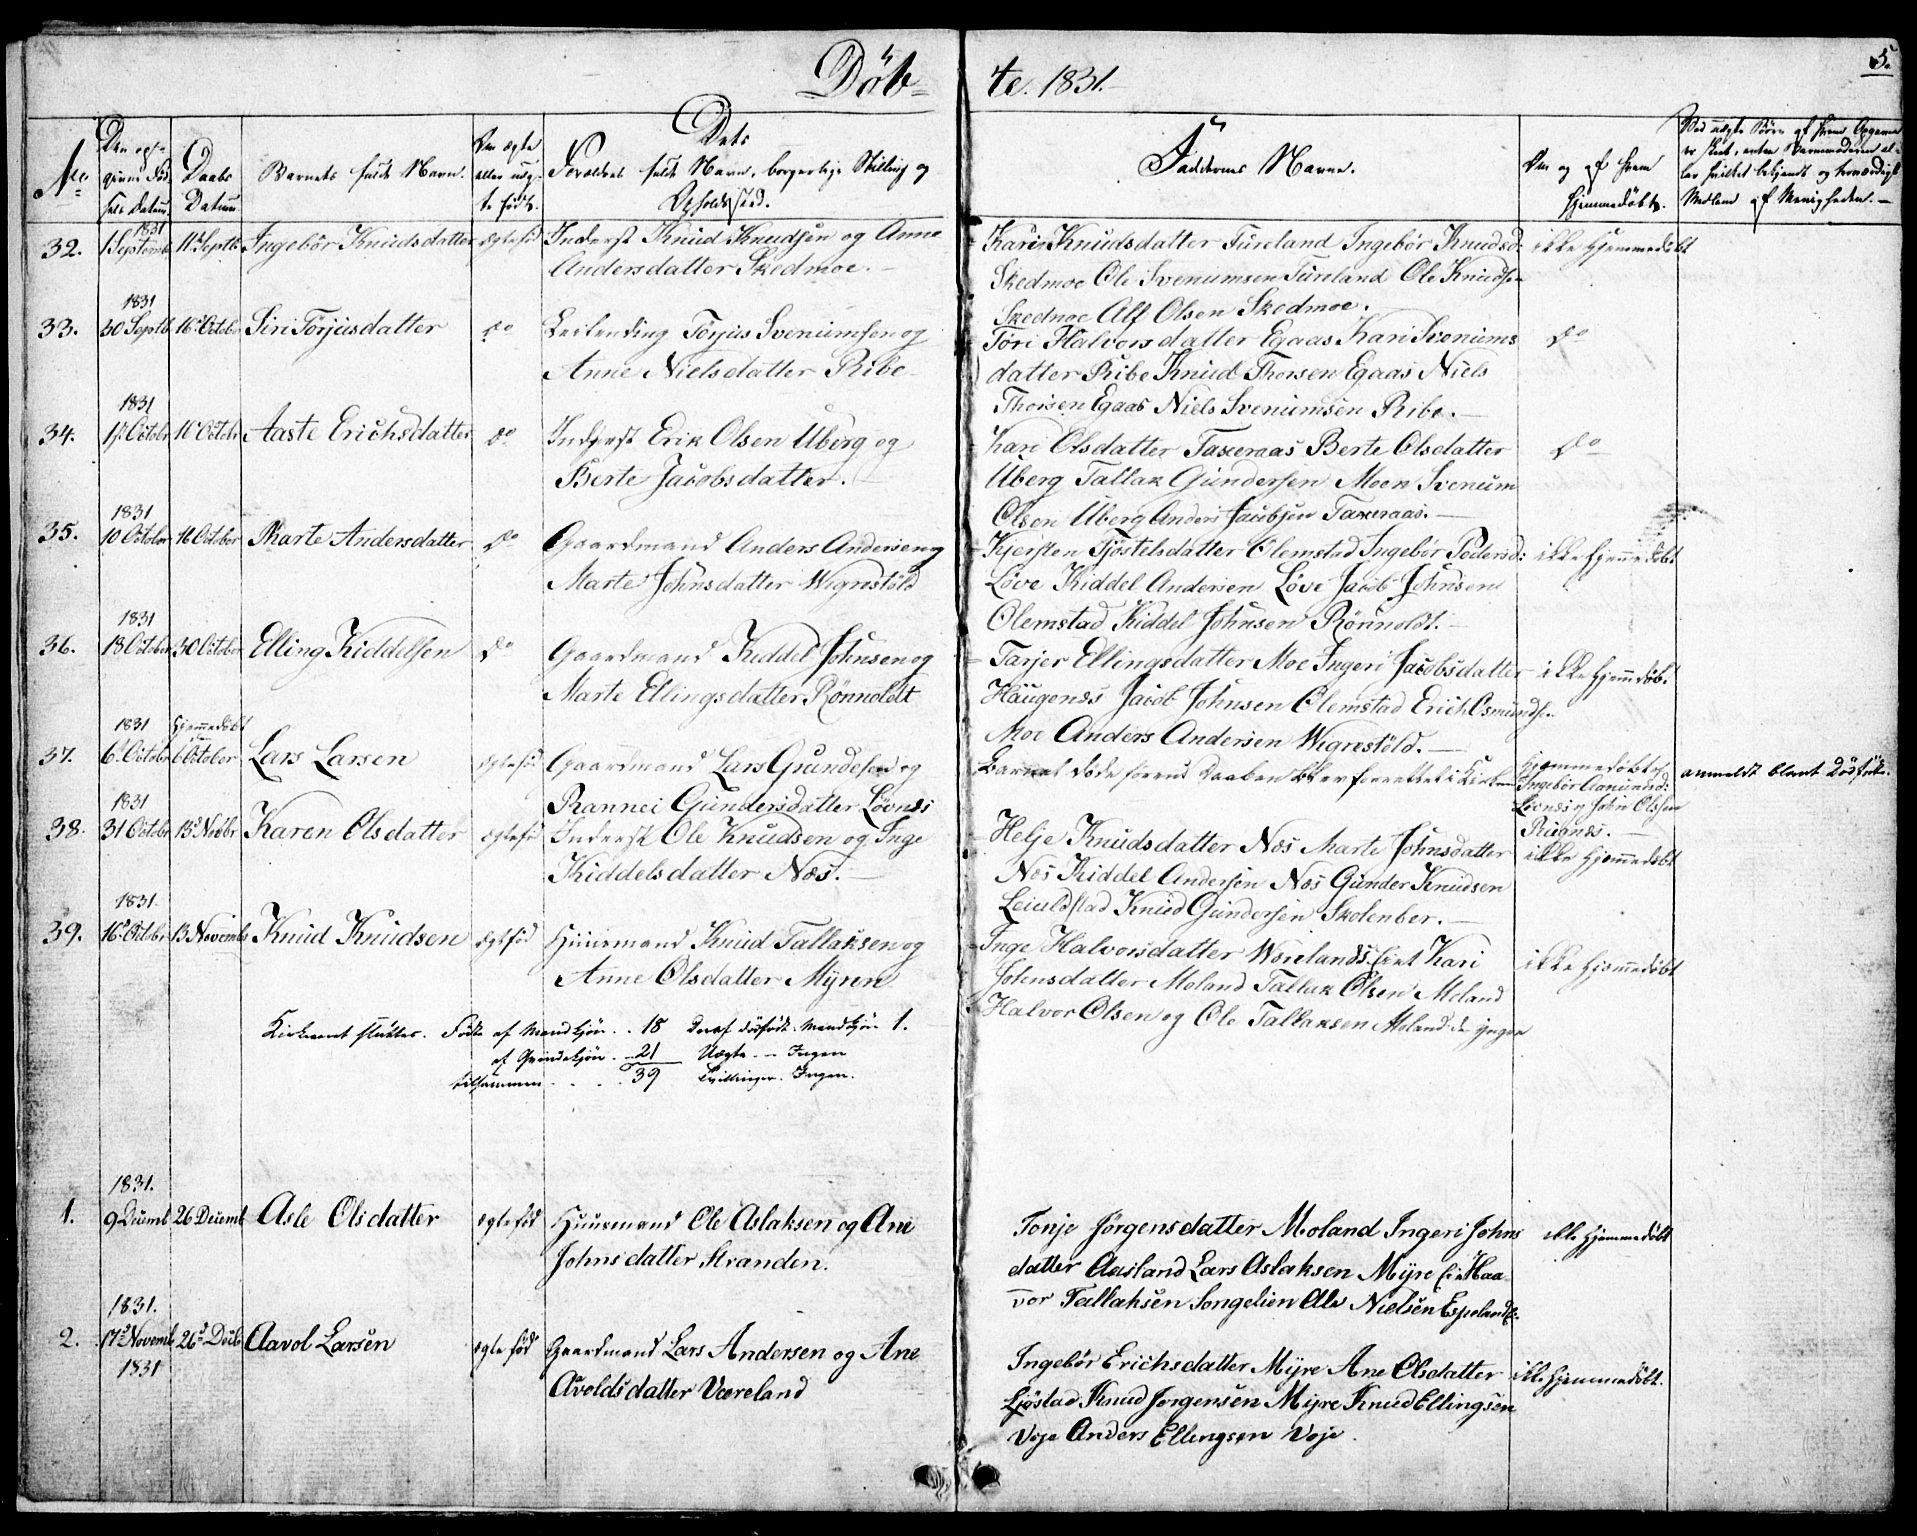 5.
Döb-
te. 1831.
No
Den opgivne Fødsels Datum.
Daabs Datum
Barnets fulde Navn.
Om ægte eller uægte født.
Dets
Forældres fulde Navn, borgerlige Stilling og
Opholdssted.
Faddernes Navne.
Om og af hvem
hjemmedøbt.
Ved uægte Børn af hvem Opgaven
er skeet, enten Barnemoderen el-
ler hvilket bekjendt og troværdigt
Medlem af Menigheden.
1831
32. 1 Septemb 11 Septb Ingebör Knudsdatter ægtefød Inderst Knud Knudsen og Anne
Andersdatter Skedmoe.
Kari Knudsdatter Tureland Ingebör Knudsd:
Skedmoe Ole Svenumsen Tureland Ole Knudsen
Skedmoe Alf Olsen Skedmoe.
ikke hjemmedøbt
1831
33. 30 Septb 16 Octobr Siri Torjusdatter do Leilending Torjus Svenumsen og
Anne Nielsdatter Ribe
Tori Halvorsdatter Egaas Kari Svenums
datter Ribe Knud Thorsen Egaas Niels
Thorsen Egaas Niels Svenumsen Ribe.
do
1831
34. 1 Octobr 16 Octobr Aaste Erichsdatter do Inderst Erik Olsen Uberg og
Berte Jacobsdatter.
Kari Olsdatter Taxeraas Berte Olsdatter
Uberg Tallak Gundersen Moen Svenum
Olsen Uberg Anders Jacobsen Taxeraas.
do
1831
35. 10 October 16 October Marte Andersdatter do Gaardmand Anders Andersen og
Marte Johnsdatter Wigrestöld
Kjersten Tjöstelsdatter Olemstad Ingebör Pedersd:
Löve Kiddel Andersen Löve Jacob Johnsen
Olemstad Kiddel Johnsen Rönnoldt.
ikke hjemmedøbt
1831
36. 18 October 30 October Elling Kiddelsen do Gaardmand Kiddel Johnsen og
Marte Ellingsdatter Rönnoldt
Tarjer Ellingsdatter Moe Ingeri Jacobsdatter
Haugends Jacob Johnsen Olemstad Erich Osmundsen
Moe Anders Andersen Wigrestöld.
ikke hjemmedøbt
1831 Hjemmedöbt
37. 6 Octobr 6 October Lars Larsen ægtefød Gaardmand Lars Grundesen og
Rannei Gundersdatter Lövnes
Barnet döde forend Daaben blev forrettet i Kirken
hjemmedøbt af
Ingebör Aamund:
Lövnes og John Olsen
anmeldt blant dødfødte.
1831
38. 31 Octobr 13 Novbr Karen Olsdatter ægtefød Inderst Ole Knudsen og Inge
Kiddelsdatter Næs.
Helje Knudsdatter Næs Marte Johnsdatter
Næs Kiddel Andersen Næs Gunder Knudsen
Leiuldstad Knud Gundersen Skolenber.
ikke hjemmedøbt
1831.
39. 16 Octobr 13 Novembr Knud Knudsen ægtefød Huusmand Knud Tallaksen og
Anne Olsdatter Myren
Inge Halvorsdatter Worelands Kari
Johnsdatter Moland Tallak Olsen Moland
Halvor Olsen og Ole Tallaksen Moland de yngre
ikke hjemmedøbt
Kirkeaaret sluttes. Fødte af Mandkjön .. 18 Deraf dødfødt Mandkjön 1.
af Qvindekjön . .. 21 Uægte .- Ingen
tilsammen . . . . 39 Tvillinger. Ingen.
1831.
1. 9 Decemb 26 Decemb Asle Olsdatter ægtefød Huusmand Ole Aslaksen og Ane
Johnsdatter Stranden.
Tonje Jörgensdatter Moland Ingeri Johns
datter Aasland Lars Aslaksen Myre Haa-
vor Tallaksen Songelien Ole Nielsen Espeland
ikke hjemmedøbt
1831.
2. 17 Novemb 26 Decb Aavol Larsen ægtefød Gaardmand Lars Andersen og Ane
1831
Avoldsdatter Væreland
Ingebör Erichsdatter Myre Ane Olsdatter
Ljöstad Knud Jörgensen Myre Knud Ellingsen
Voje Anders Ellingsen Voje.
ikke hjemmedøbt.